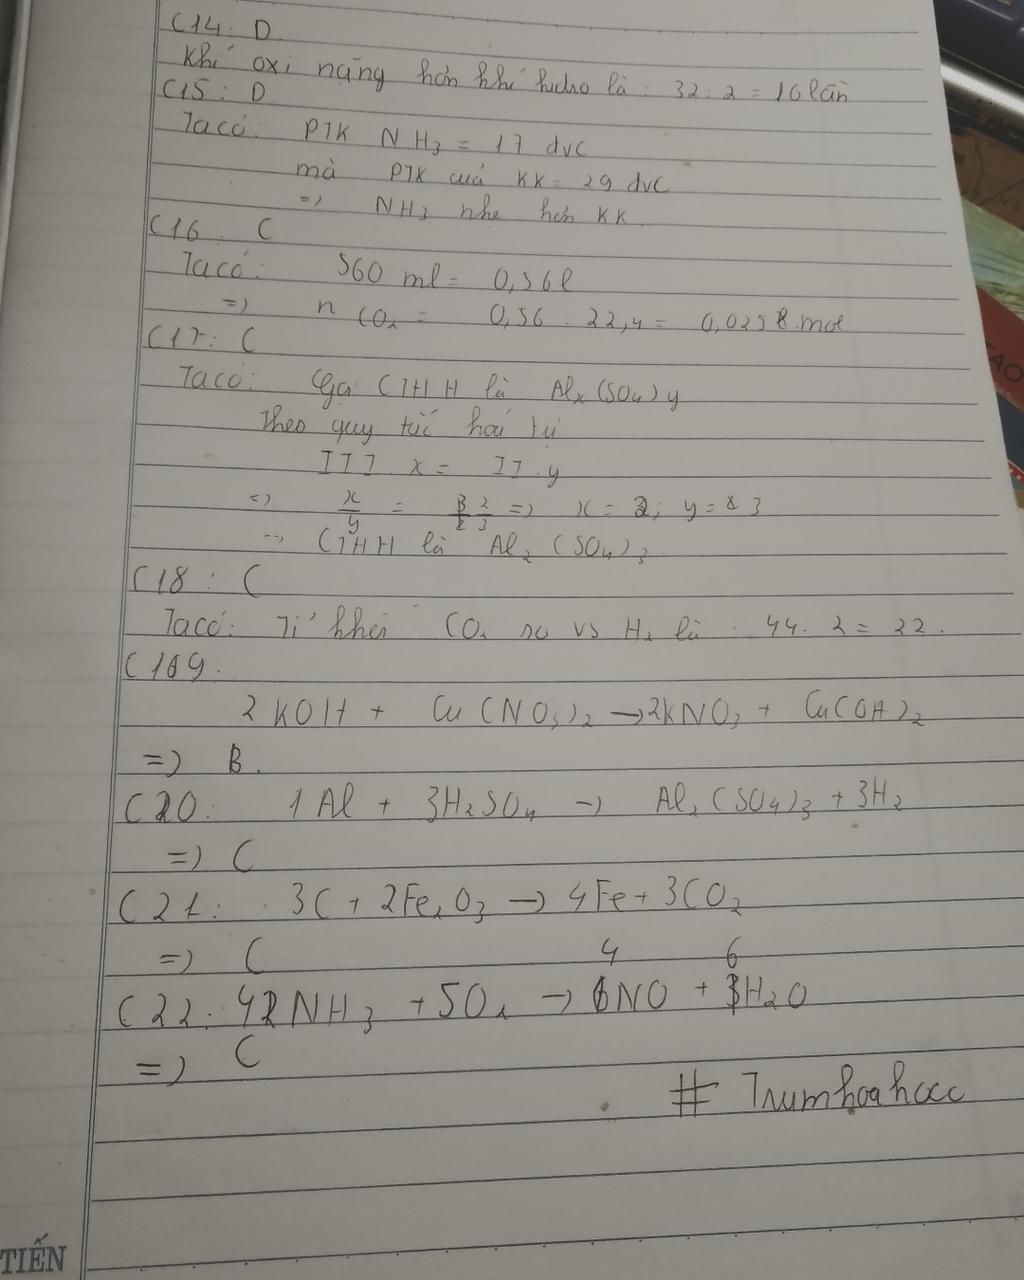 C14: D
Khí oxi nặng hơn khí hidro là: 32:2 = 16 lần
C15: D
Ta có: PTK NH3 = 17 dvc
mà PTK của KK = 29 dvc
=> NH3 nhẹ hơn KK
C16: C
Ta có: 560 ml = 0,56l
=> n CO2 = 0,56 : 22,4 = 0,0258 mol
C17: C
Ta có: Gọi CTHH là Alx(SO4)y
Theo quy tắc hoá trị
III.x = II.y
=> x/y = 2/3 => x = 2; y = 3
=> CTHH là Al2(SO4)3
C18: C
Ta có: Tỉ khối CO2 so vs H2 là: 44:2 = 22.
C19:
2KOH + Cu(NO3)2 → 2KNO3 + Cu(OH)2
=> B.
C20: 1Al + 3H2SO4 → Al2(SO4)3 + 3H2
=> C
C21: 3C + 2Fe2O3 → 4Fe + 3CO2
=> C
C22: 4NH3 + 5O2 → 4NO + 6H2O
=> C
# Trumhoahocc
TIẾN